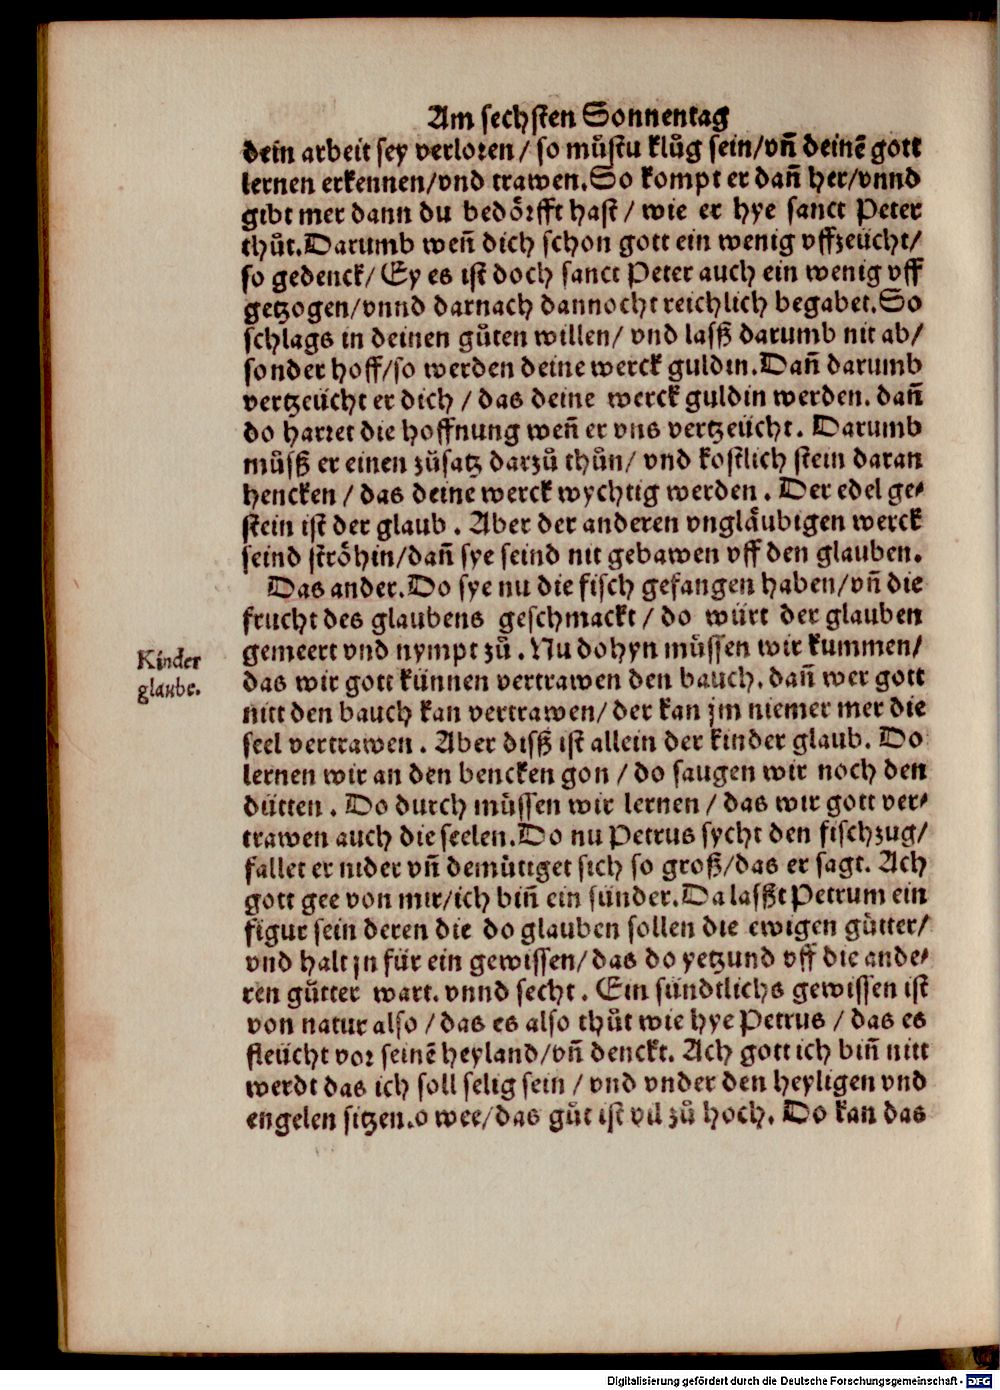 Am sechsten Sonnentag
dein arbeit sey verloren / so můstu klůg sein/vñ deinē gott
lernen erkennen/vnd trawen.So kompt er dañ her/vnnd
gibt mer dann du bedörfft hast / wie er hye sanct Peter
thůt.Darumb weñ dich schon gott ein wenig vffzeücht/
so gedenck/ Ey es ist doch sanct Peter auch ein wenig vff
getzogen/vnnd darnach dannocht reichlich begabet.So
schlags in deinen gůten willen/ vnd lasß darumb nit ab/
sonder hoff/so werden deine werck guldin.Dañ darumb
vertzeücht er dich / das deine werck guldin werden. dañ
do harret die hoffnung weñ er vns vertzeücht. Darumb
můsß er einen zůsatz darzů thůn/ vnd kostlich stein daran
hencken / das deine werck wychtig werden . Der edel ge⸗
stein ist der glaub . Aber der anderen vngläubigen werck
seind ströhin/dañ sye seind nit gebawen vff den glauben.
Das ander.Do sye nu die fisch gefangen haben/vñ die
frucht des glaubens geschmackt / do würt der glauben
gemeert vnd nympt zů . Nu dohyn müssen wir kummen/
Kinder
glaube.
das wir gott künnen vertrawen den bauch. dañ wer gott
nitt den bauch kan vertrawen/ der kan jm niemer mer die
seel vertrawen . Aber disß ist allein der kinder glaub. Do
lernen wir an den bencken gon / do saugen wir noch den
dütten . Do durch müssen wir lernen / das wir gott ver⸗
trawen auch die seelen.Do nu Petrus sycht den fischzug/
fallet er nider vñ demüttiget sich so groß/das er sagt. Ach
gott gee von mir/ich biñ ein sünder.Da lasßt Petrum ein
figur sein deren die do glauben sollen die ewigen gütter/
vnd halt jn für ein gewissen/ das do yetzund vff die ande⸗
ren gütter wart. vnnd secht . Ein sündtlichs gewissen ist
von natur also / das es also thůt wie hye Petrus / das es
fleücht vor seinē heyland/vñ denckt. Ach gott ich biñ nitt
werdt das ich soll selig sein / vnd vnder den heyligen vnd
engelen sitzen.o wee/das gůt ist vil zů hoch. Do kan das
Digitalisierung gefördert durch die Deutsche Forschungsgemeinschaft - DFG